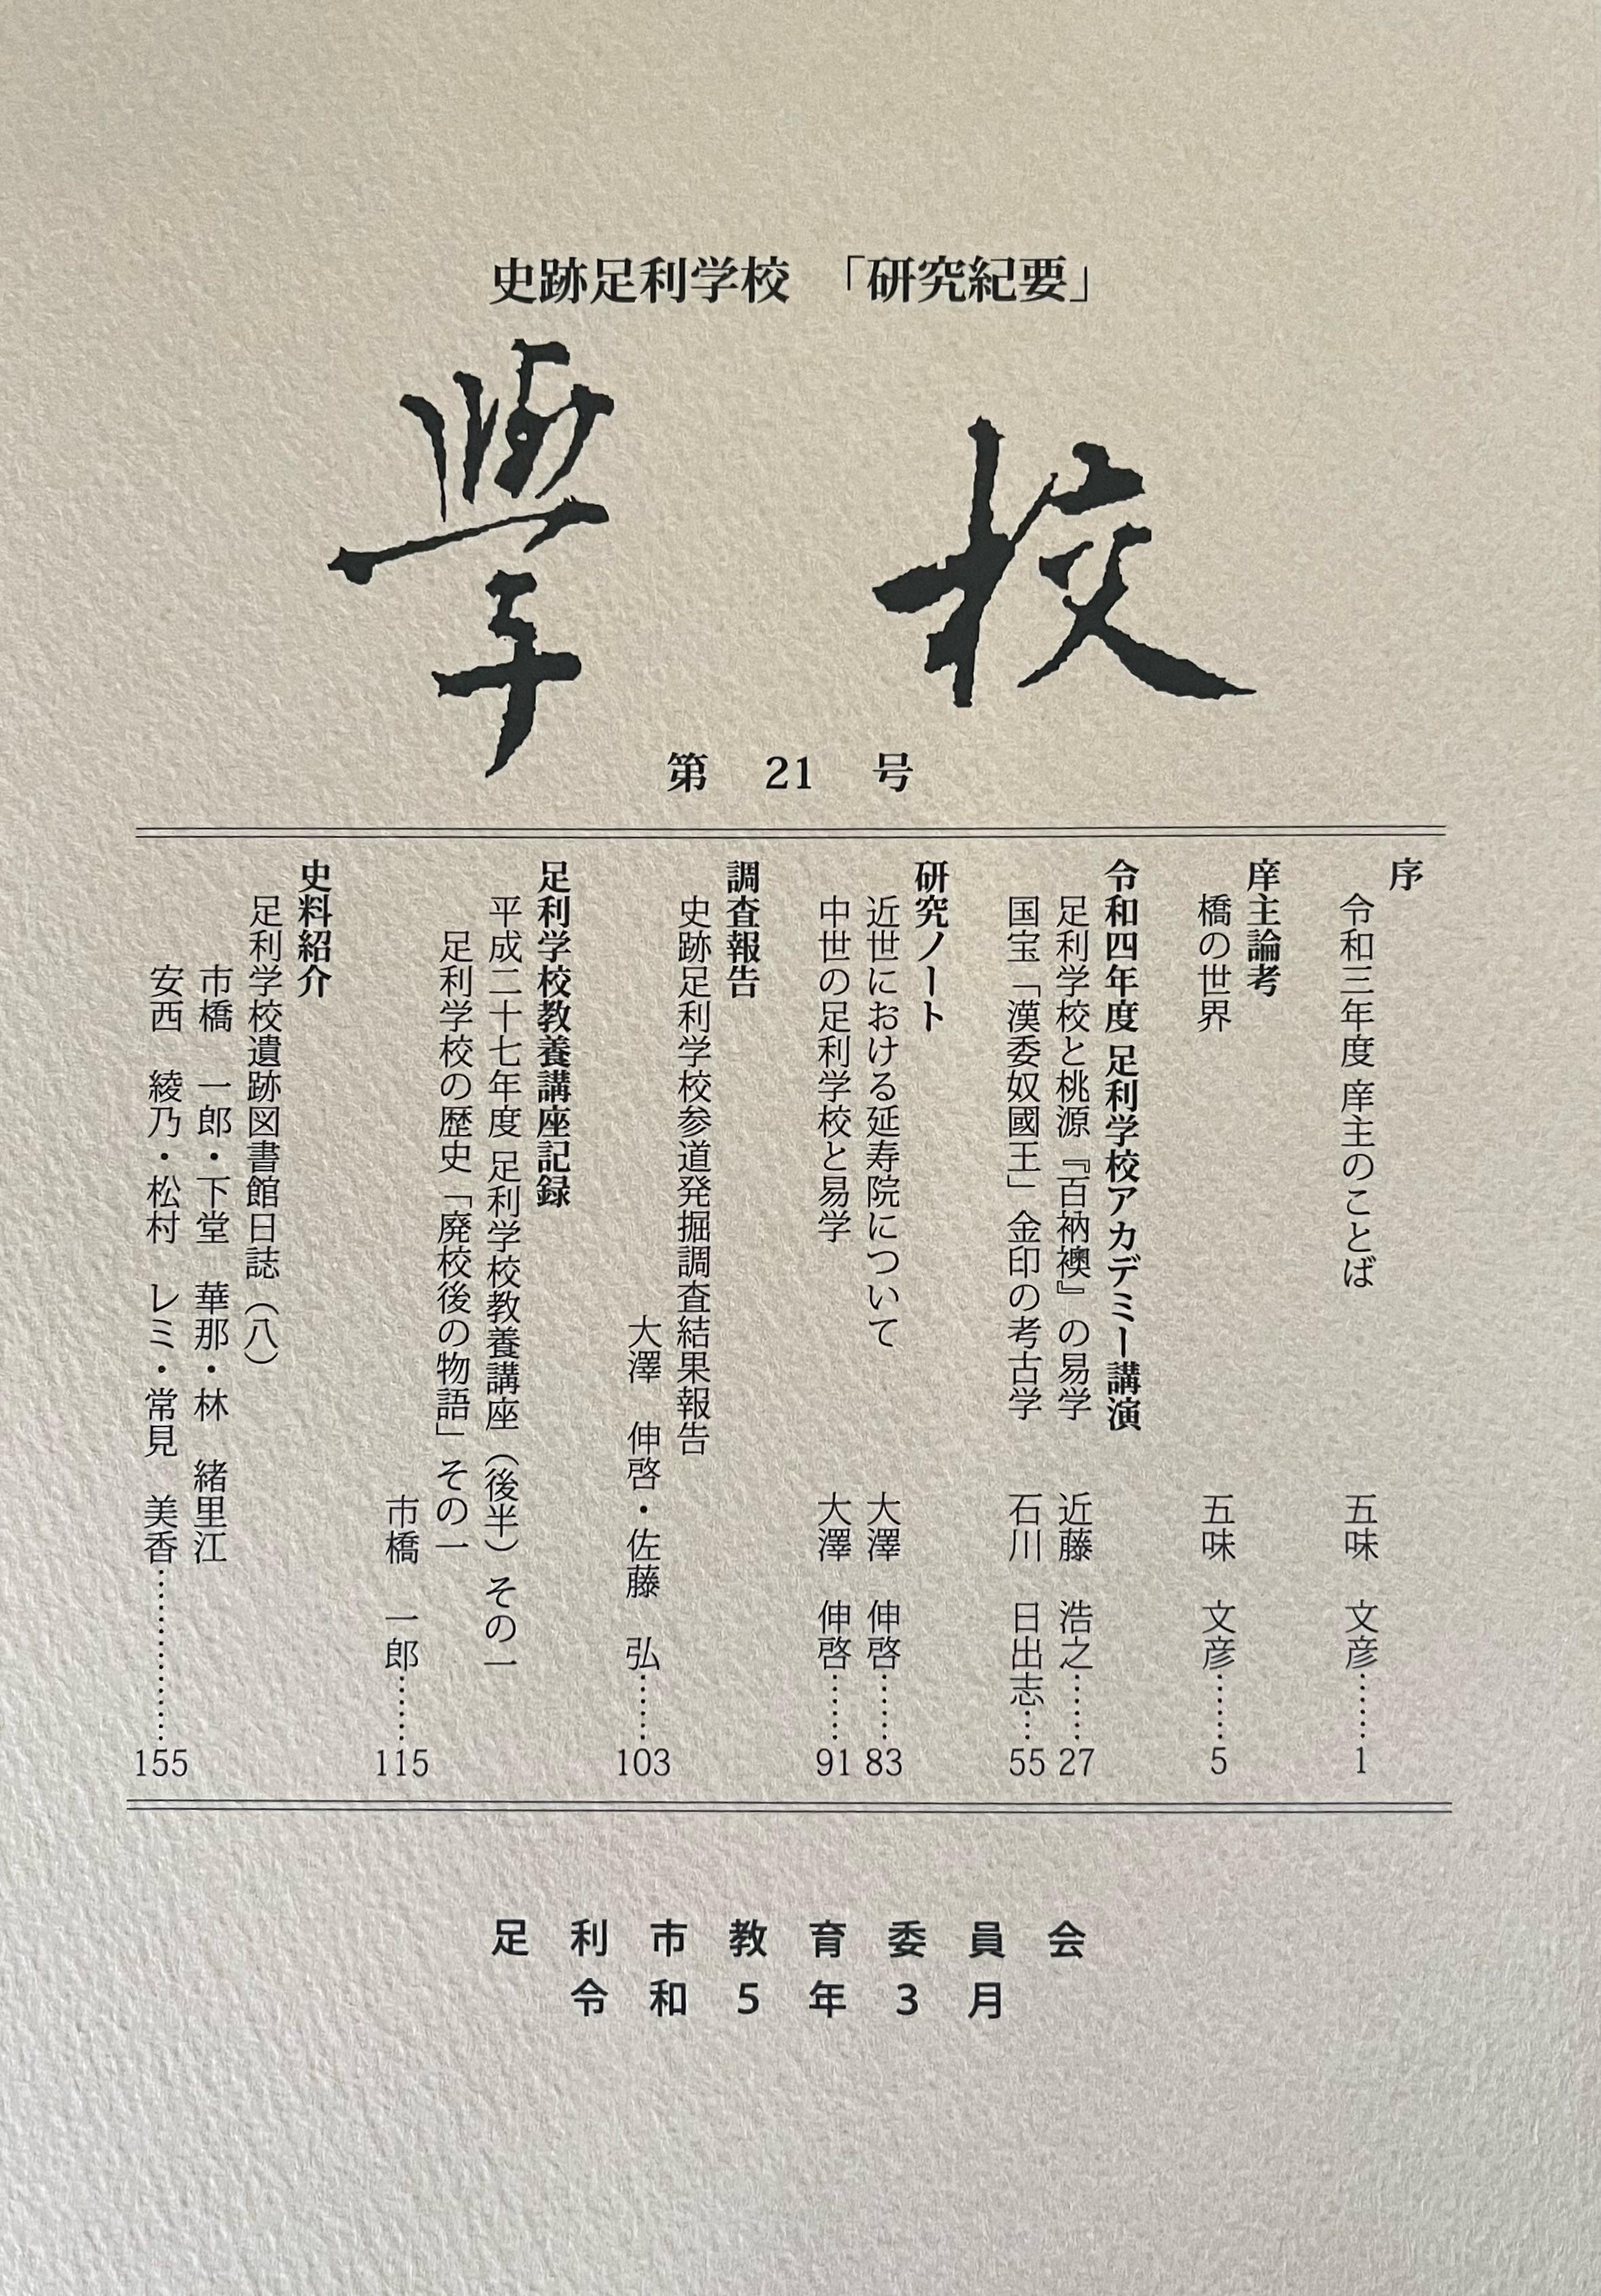 史跡足利学校　「研究紀要」
學　校
第　21　号
序
令和三年度 庠主のことば　五味　文彦……1
庠主論考
橋の世界　五味　文彦……5
令和四年度 足利学校アカデミー講演
足利学校と桃源『百衲襖』の易学　近藤　浩之……27
国宝「漢委奴國王」金印の考古学　石川　日出志…55
研究ノート
近世における延寿院について　大澤　伸啓……83
中世の足利学校と易学　大澤　伸啓……91
調査報告
史跡足利学校参道発掘調査結果報告
大澤　伸啓・佐藤　弘……103
足利学校教養講座記録
平成二十七年度 足利学校教養講座（後半）その一
足利学校の歴史「廃校後の物語」その一
市橋　一郎……115
史料紹介
足利学校遺跡図書館日誌（八）
市橋　一郎・下堂　華那・林　緒里江
安西　綾乃・松村　レミ・常見　美香………………155
足利市教育委員会
令和5年3月